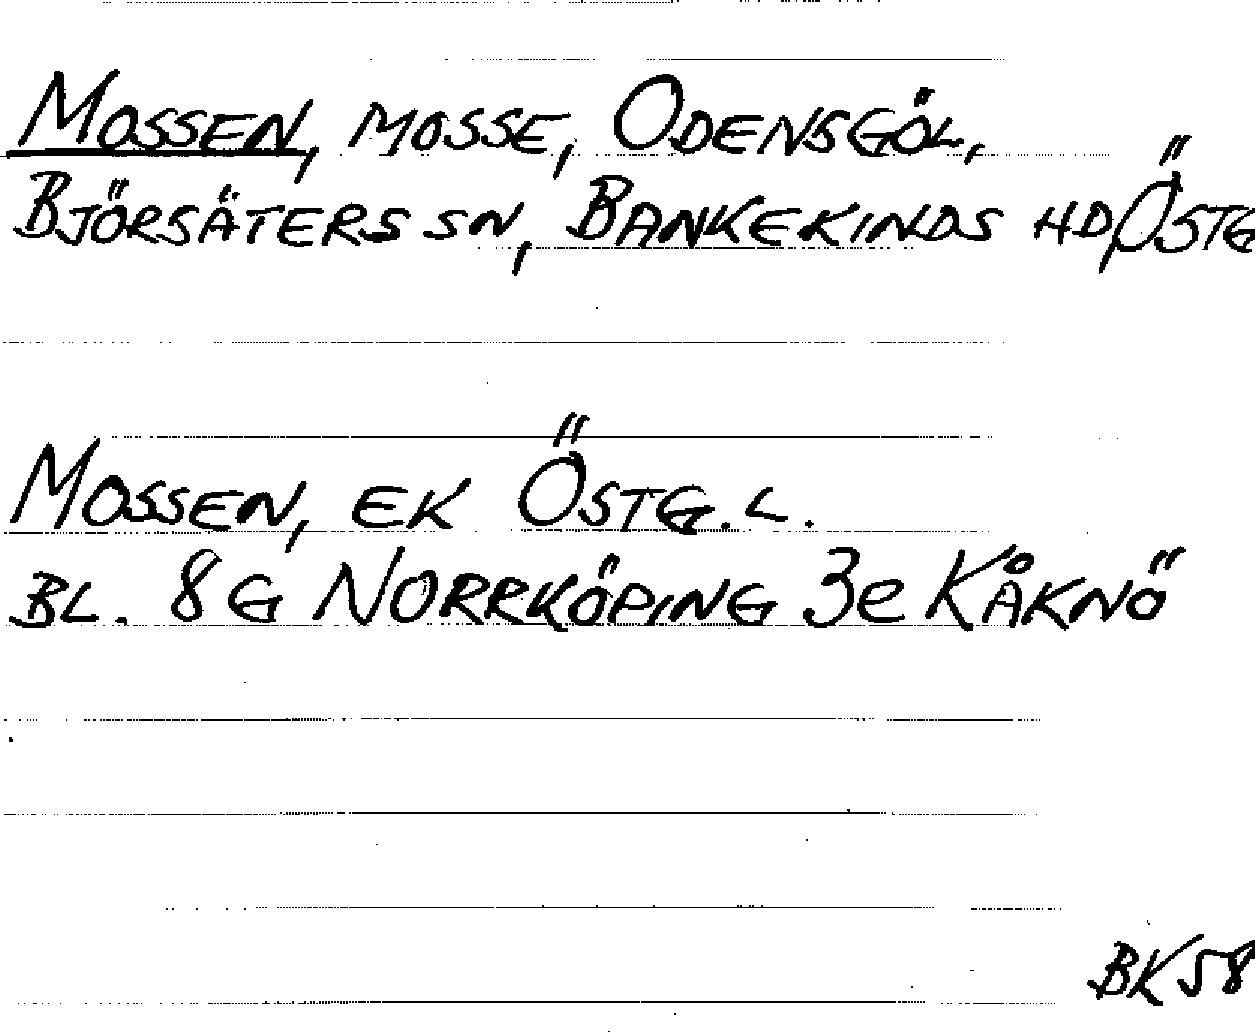 MOSSEN, MOSSE, ODENSGÖL,
BJÖRSÄTERS SN, BANKEKINDS HD, ÖSTG
MOSSEN, EK ÖSTG.L.
BL. 8G NORRKÖPING 3e KÅKNÖ
BK58